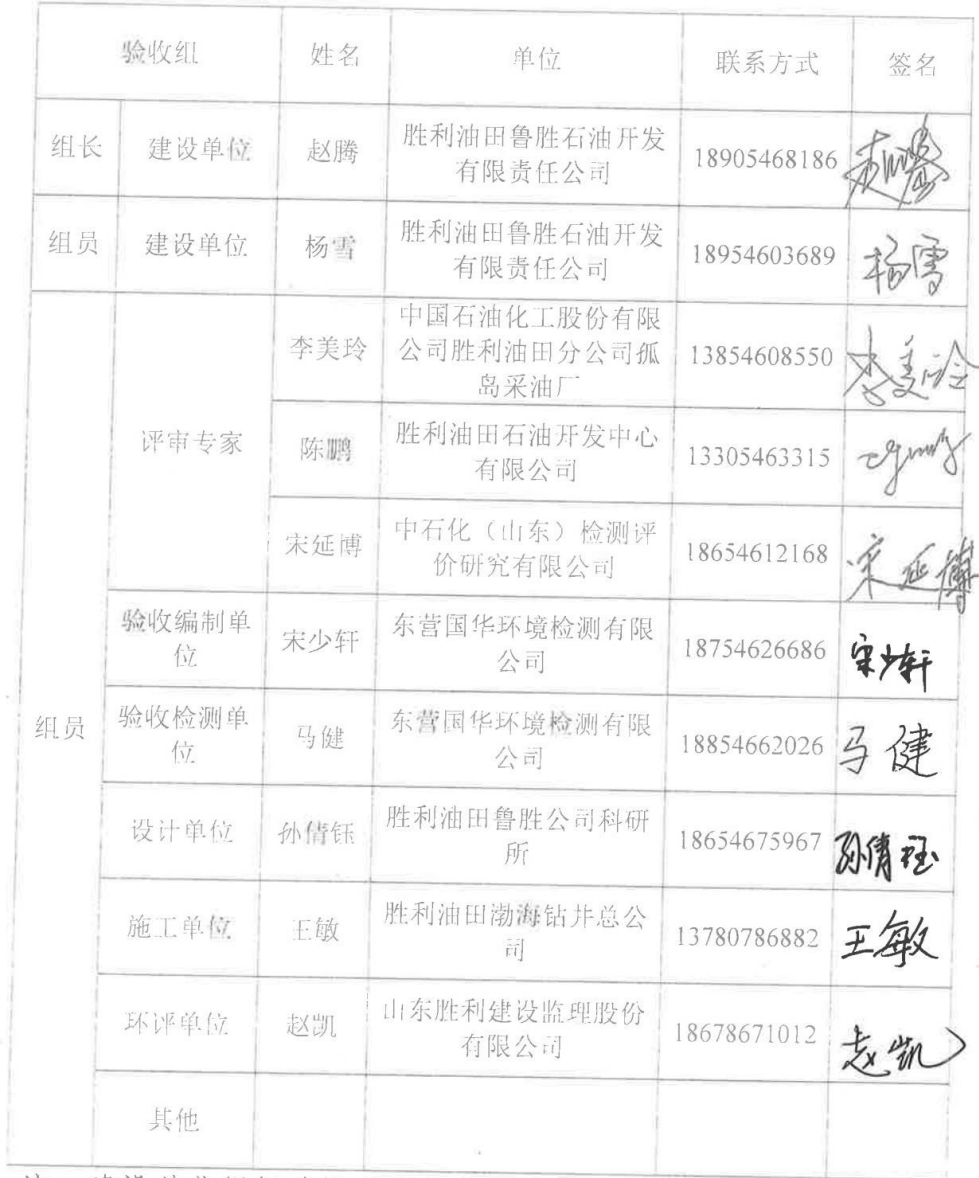 验收组 姓名 单位 联系方式 签名
组长 建设单位 赵腾 胜利油田鲁胜石油开发
有限责任公司 18905468186
组员 建设单位 杨雪 胜利油田鲁胜石油开发
有限责任公司 18954603689 杨雪
组员
评审专家
李美玲 中国石油化工股份有限
公司胜利油田分公司孤
岛采油厂 13854608550 李美玲
陈鹏 胜利油田石油开发中心
有限公司 13305463315
宋延博 中石化（山东）检测评
价研究有限公司 18654612168 宋延博
验收编制单
位 宋少轩 东营国华环境检测有限
公司 18754626686 宋少轩
验收检测单
位 马健 东营国华环境检测有限
公司 18854662026 马健
设计单位 孙倩钰 胜利油田鲁胜公司科研
所 18654675967 孙倩钰
施工单位 王敏 胜利油田渤海钻井总公
司 13780786882 王敏
环评单位 赵凯 山东胜利建设监理股份
有限公司 18678671012 赵凯
其他